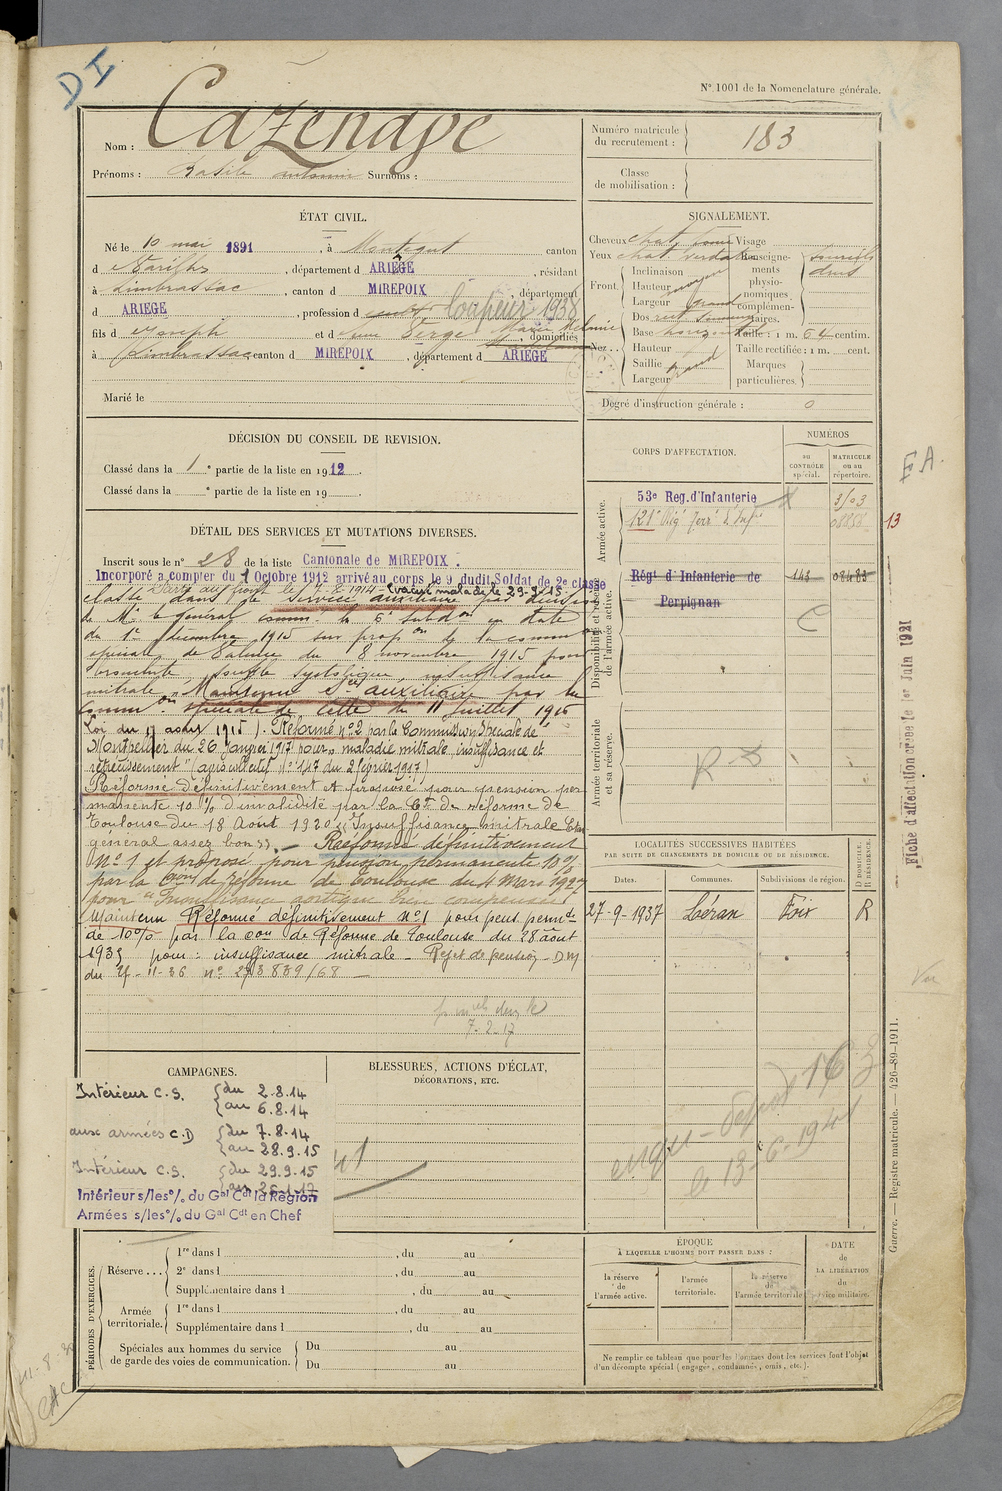 DI
N° 1001 de la Nomenclature générale.
Nom : Cazenave
Prénoms : Basile antonin Surnoms :
Numéro matricule du recrutement : 183
Classe de mobilisation :
ÉTAT CIVIL.
Né le 10 mai 1891, à Montégut canton
d Varilhes, département d ARIEGE, résidant
à Limbrassac, canton d MIREPOIX, département
d ARIEGE, profession d Tapeur 1938
fils d Joseph et d Marie Melanie, domiciliés
à Limbrassac canton d MIREPOIX, département d ARIEGE
Marié le
SIGNALEMENT.
Cheveux chat. Visage
Yeux chat. verdatre Renseignements physionomiques complémentaires. sourcils drus
Front. Inclinaison
Hauteur moyen
Largeur grand
Nez. Dos rect.
Base horizontal Taille : 1 m. 64 centim.
Hauteur Taille rectifiée : 1 m. cent.
Saillie grand Marques particulières.
Largeur
Degré d'instruction générale : 0
DÉCISION DU CONSEIL DE REVISION.
Classé dans la 1e partie de la liste en 1912.
Classé dans la e partie de la liste en 19
CORPS D'AFFECTATION.
NUMÉROS
au CONTRÔLE spécial.
MATRICULE ou au répertoire.
Armée active.
53e Reg. d'Infanterie 3103
121e Rég Terr d'Infie 08858 13
Disponibilité et réserve de l'armée active.
Régt d'Infanterie de Perpignan 143 08483
C
Armée territoriale et sa réserve.
EA.
Fiche d'affectation créée le 1er Juin 1921
DÉTAIL DES SERVICES ET MUTATIONS DIVERSES.
Inscrit sous le n° 28 de la liste Cantonale de MIREPOIX.
Incorporé a compter du 1 Octobre 1912 arrivé au corps le 9 dudit Soldat de 2e classe
Parti au front le 7-8-1914 - Evacué malade le 29-9-15
classé dans le service auxiliaire par décision
de Mr le Général comm. la 6 subdon en date
du 1er décembre 1915 sur propon de la common
spéciale de du 8 novembre 1915 pour
bronchite, souffle systolique, insuffisance
mitrale. Maintenu sce auxiliaire par la
Common spéciale de Cette du 11 juillet 1916
Loi du 17 août 1915). Réformé n° 2 par la Commission Spéciale de
Montpellier du 26 Janvier 1917 pour « maladie mitrale, insuffisance et
rétrécissement" (avis collectif N° 147 du 2 février 1917)
Réformé définitivement et proposé pour pension per
manente 10 % d'invalidité par la Con de réforme de
Toulouse du 18 Août 1920 « Insuffisance mitrale Etat
général assez bon ». — Réformé définitivement
N° 1 et proposé pour pension permanente 10 %
par la Con de réforme de Toulouse du 4 Mars 1927
pour « Insuffisance aortique bien compensée »
Maintenu Réformé définitivement N° 1 pour pens permte
de 10% par la con de Réforme de Toulouse du 28 août
1935 pour : insuffisance mitrale - Rejet de pension - DM
du 27-11-36
7-2-17
LOCALITÉS SUCCESSIVES HABITÉES
PAR SUITE DE CHANGEMENTS DE DOMICILE OU DE RÉSIDENCE.
Dates.
Communes.
Subdivisions de région.
D domicile. R résidence.
27-9-1937 Léran Foix R
Vu
le 13-6-1941
CAMPAGNES.
Intérieur C.S. du 2.8.14 au 6.8.14
aux armées C.D du 7.8.14 au 28.9.15
Intérieur C.S. du 29.9.15 au 26.1.17
Intérieur s/les% du Gal Cdt la Région
Armées s/les% du Gal Cdt en Chef
BLESSURES, ACTIONS D'ÉCLAT,
DÉCORATIONS, ETC.
PÉRIODES D'EXERCICES.
Réserve ... 1re dans l , du au
2e dans l , du au
Supplémentaire dans l , du au
Armée territoriale. 1re dans l , du au
Supplémentaire dans l , du au
Spéciales aux hommes du service de garde des voies de communication. Du au
Du au
ÉPOQUE
À LAQUELLE L'HOMME DOIT PASSER DANS :
la réserve de l'armée active.
l'armée territoriale.
la réserve de l'armée territoriale
DATE de LA LIBÉRATION du service militaire.
Ne remplir ce tableau que pour les hommes dont les services font l'objet
d'un décompte spécial (engagés, condamnés, omis, etc.).
Guerre. — Registre matricule. — 426-89-1911.